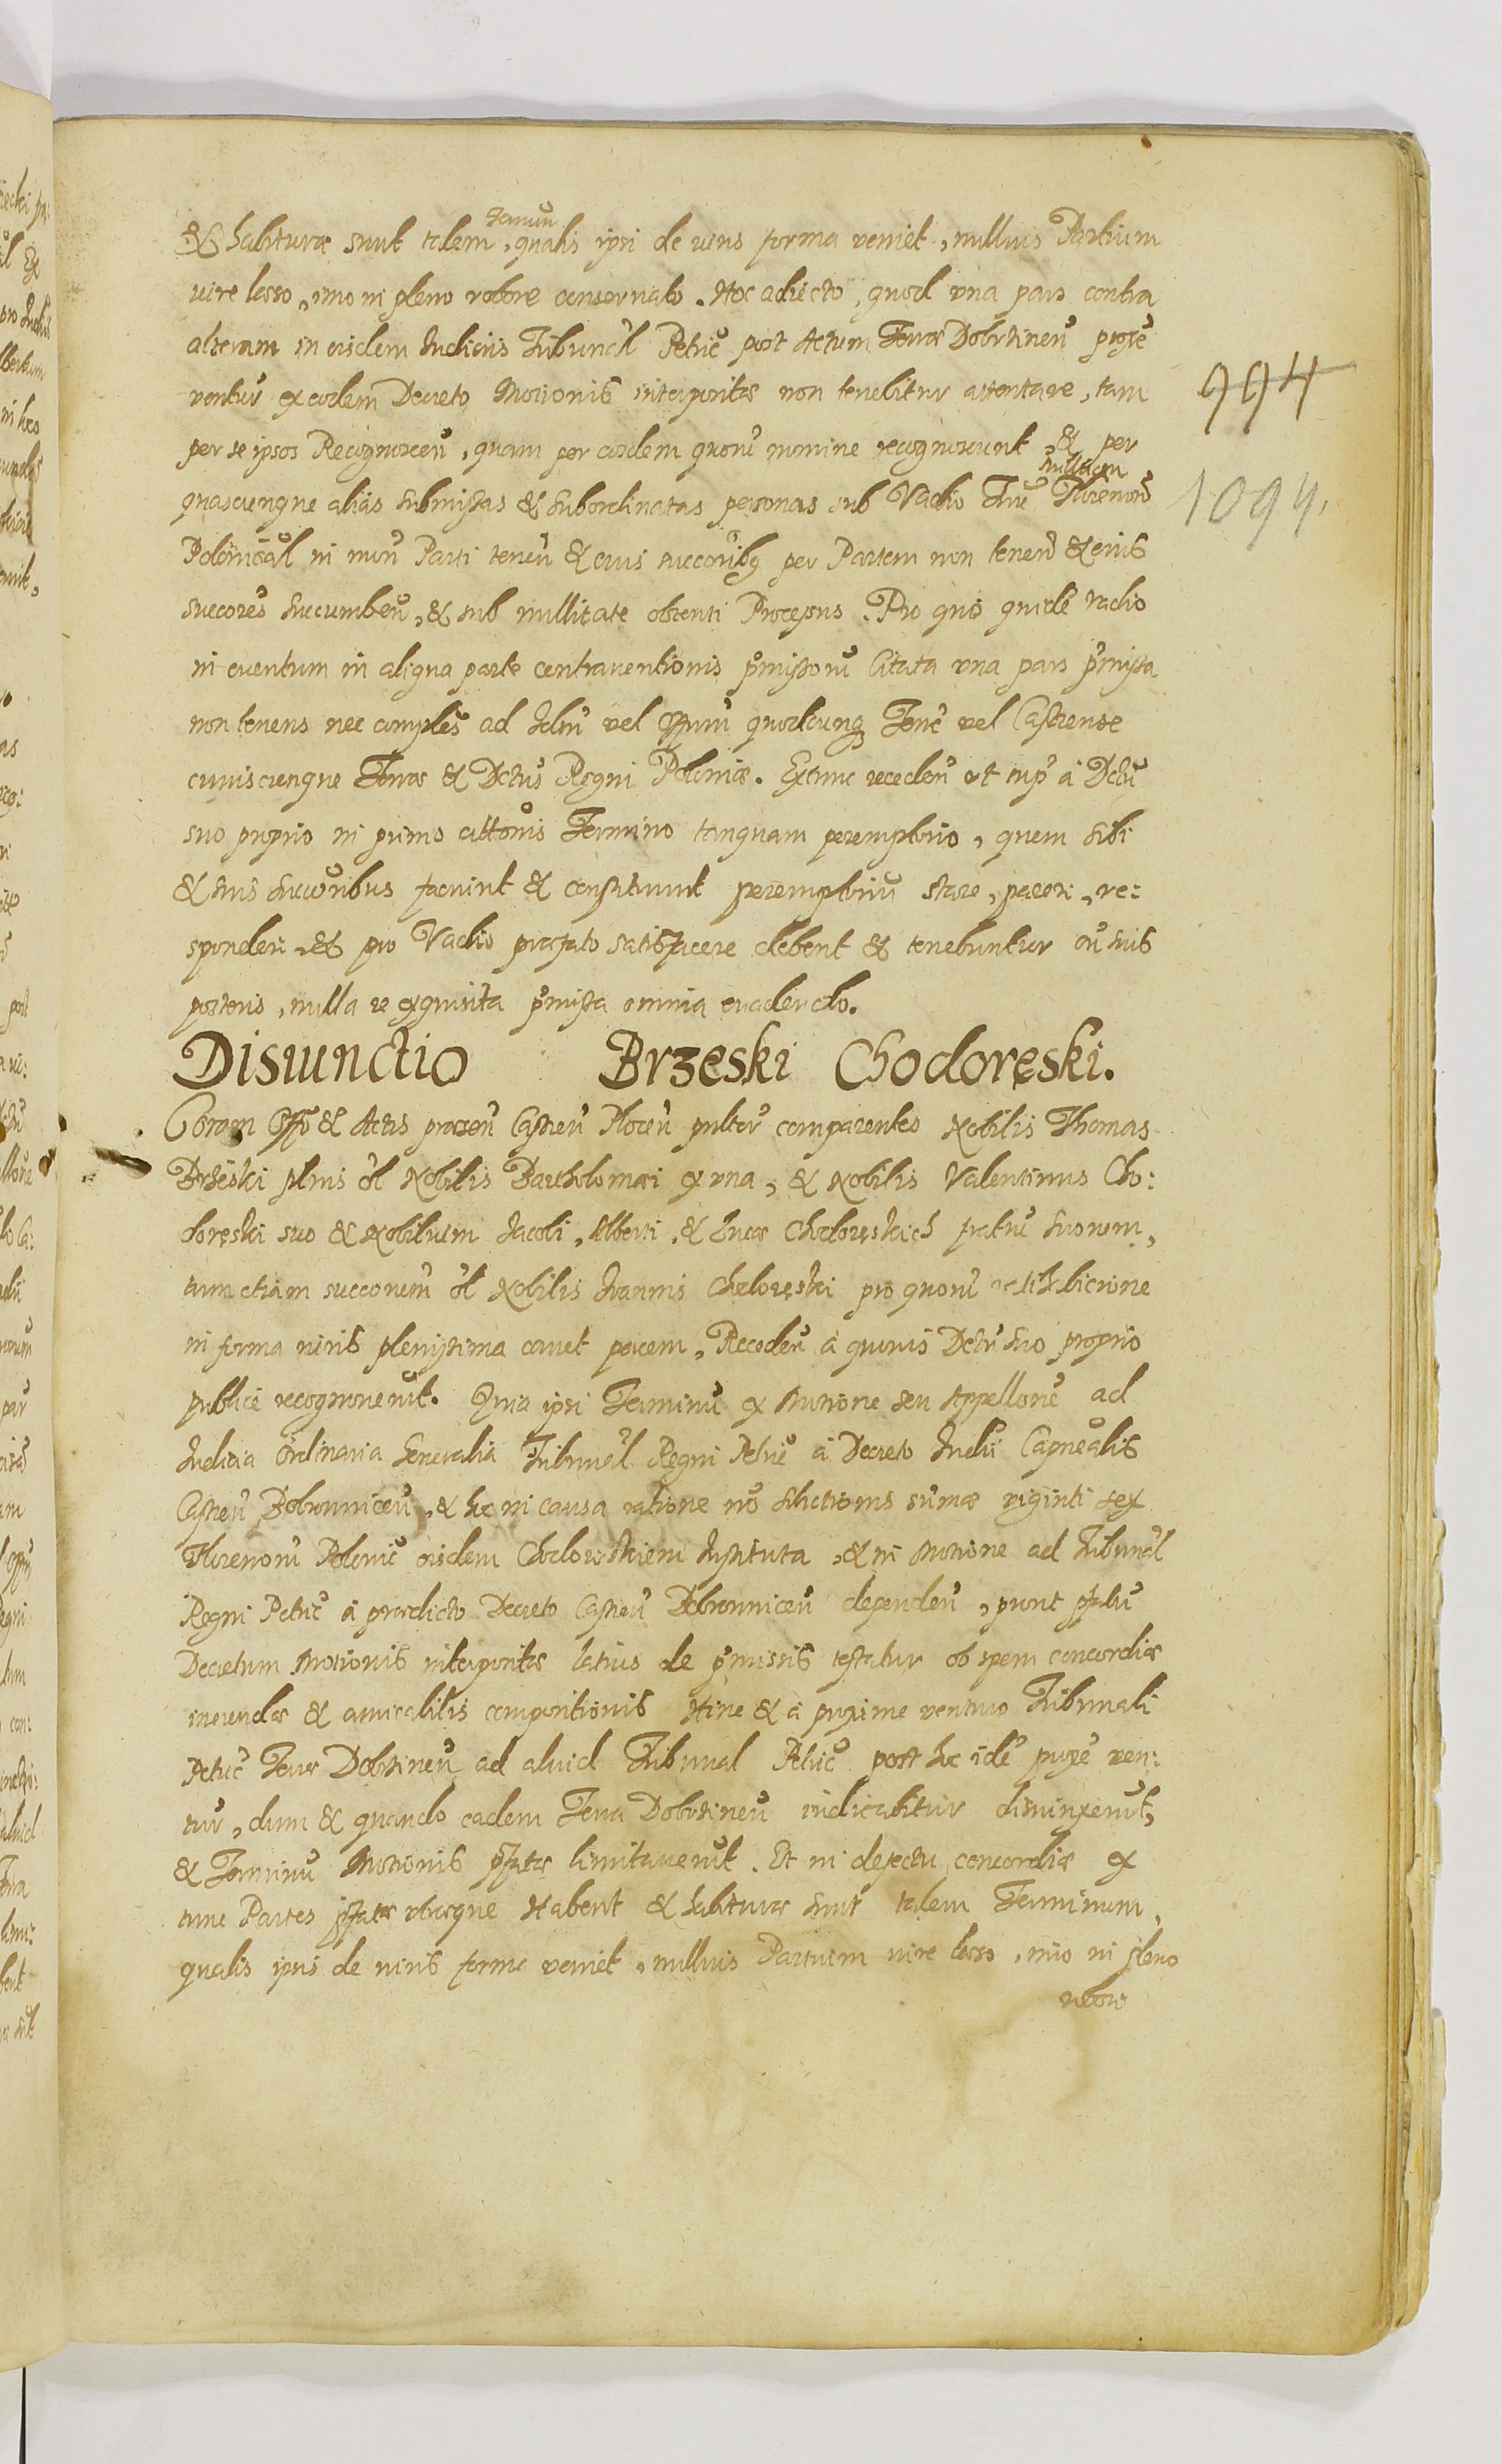 & habituræ sunt talem Termin, qualis ipsi de iuris forma veniet, nullius Partium
iure læso, imo in pleno robore conservato. Hoc adiecto, quod una pars contra
alteram in eisdem Iudiciis Tribunal Petric post Actum Terræ Dobrzinen proxe
ventur ex eodem Decreto Motionis interpositæ non tenebitur attentare, tam
per se ipsos Recognoscen, quam per eosdem quorum nomine recognoscunt, & per
quascunque aliàs submissas & subordinatas personas sub Vadio Florenorum
Polonical in non Parti tenen & eius succoribus per Partem non tenen & eius
succores succumben, & sub nullitate obtenti Processus. Pro quo quidem vadio
in eventum in aliqua parte contraventionis præmissorum Citata una pars præmissa
non tenens nec complens ad Iudm vel Offum quodcunq Terre vel Castrense
cuiuscunque Terræ & Dctus Regni Poloniæ. Extunc receden à Dctu
suo proprio in primo citationis Termino tanquam peremptorio, quem sibi
& suis succoribus faciunt & constituunt peremptorium stare, parere, re:
sponderi & pro Vadio præfato satisfacere debent & tenebuntur cum suis
posteris, nulla re exquisita præmissa omnia evadendo.
Disiunctio Brzęski Chodoręski.
Coram Offo & Actis præsen Castren Plocen pnlter comparentes Nobilis Thomas
Brzęski filius ol Nobilis Bartholomæi ex una, & Nobilis Valentinus Cho:
doręski suo & Nobilium Iacobi, Alberti, & Lucæ Chodoręskich fratrum suorum,
tum etiam succorum ol Nobilis Ioannis Chodoręski pro quorum ratihabitione
in forma iuris plenissima cavet pacem, Receden à quovis Dctu suo proprio
publicè recognoverunt. Quia ipsi Terminum ex Motione seu Appellone ad
Iudicia Ordinaria Generalia Tribunal Regni Petric à Decreto Iudii Capnealis
Castren Bobrownicen, & hic in causa ratione non solutionis summæ viginti sex
Florenorum Polonic eisdem Chodoręskiem Instituta, & in Motione ad Tribunal
Regni Petric à prædicto Decreto Castren Bobrownicen dependen, prout pfatum
Decretum Motionis interpositæ latius de præmissis testatur ob spem concordiæ
ineundæ & amicabilis compositionis Hinc & à proxime venturo Tribunali
Petric Terræ Dobrzinen ad aliud Tribunal Petric post hic idem proxe ven:
tur, dum & quando eadem Terra Dobrzinen iudicabitur disiunxerunt,
& Terminum Motionis pfatæ limitaverunt. Et in defectu concordiæ ex
tunc Partes pfatæ utræque Habent & habituræ sunt talem Terminum,
qualis ipsis de iuris forma veniet, nullius Partium iure læso, imo in pleno
robore
994
1094.